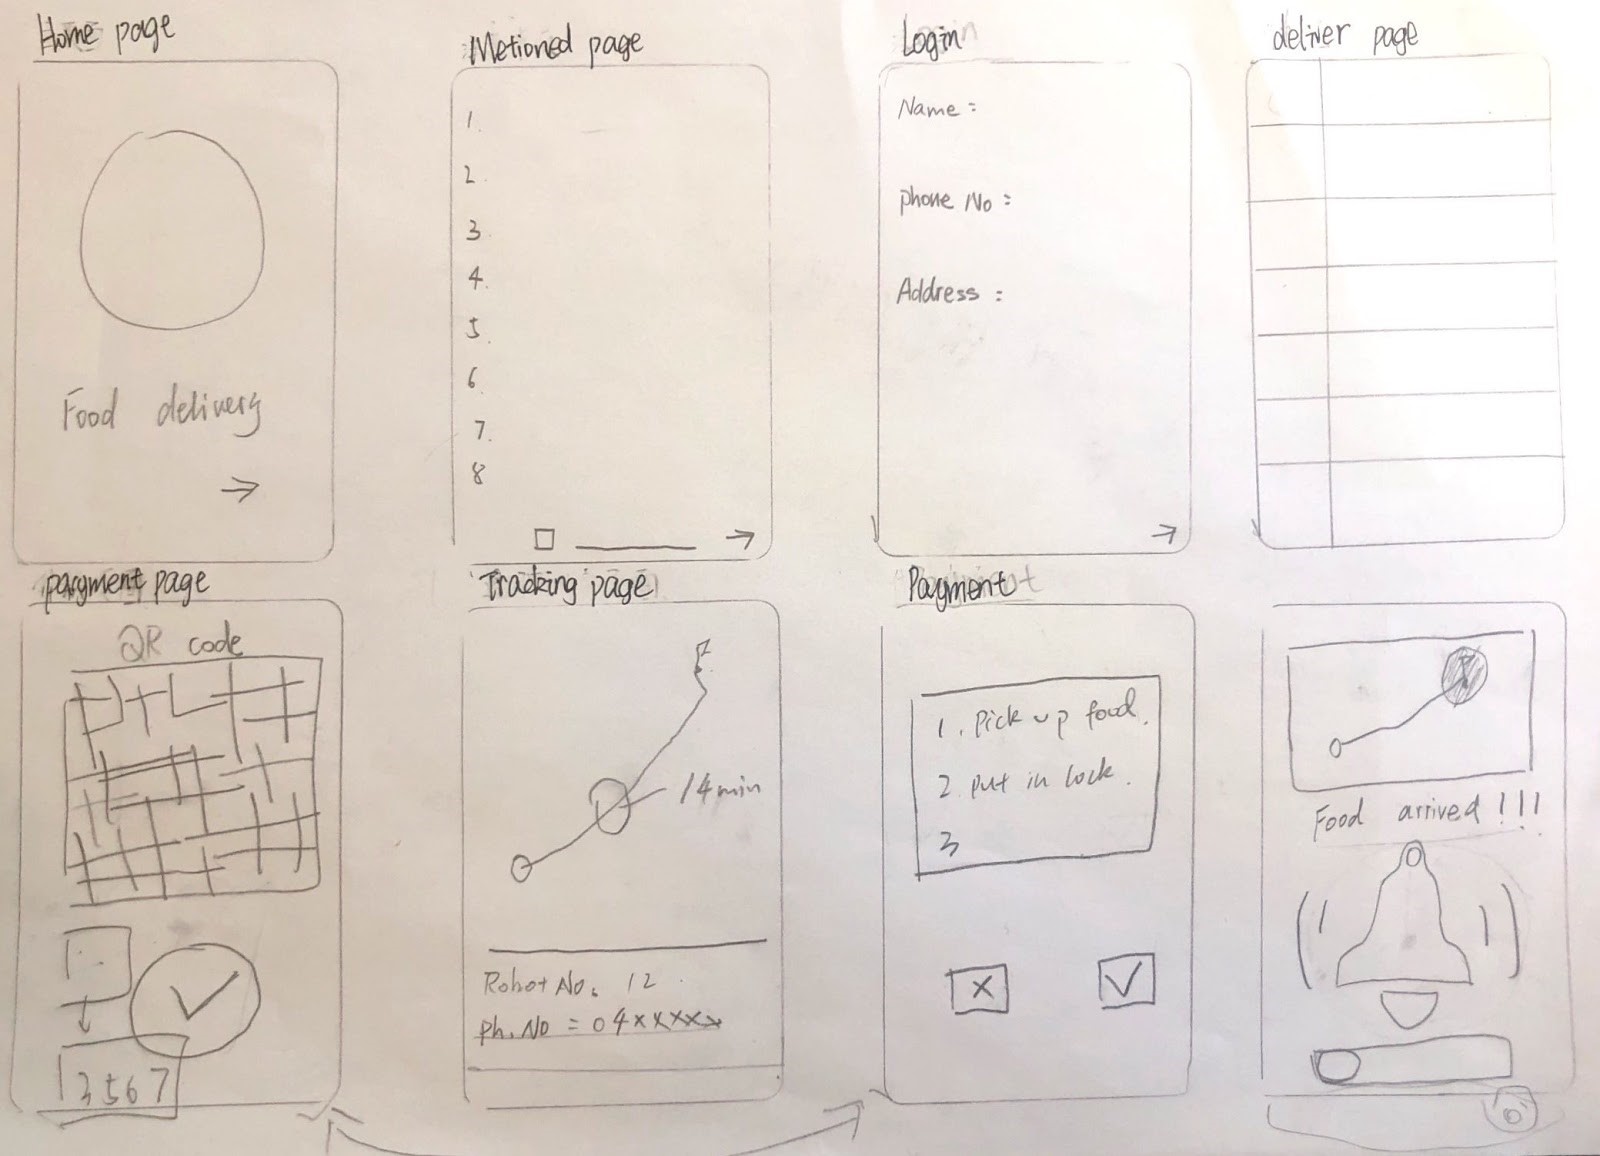 Home page
Food delivery
→
Metioned page
1.
2.
3
4.
5.
6
7.
8
→
Login
Name :
phone No :
Address :
→
deliver page
payment page
QR code
3567
Tracking page
14min
Robot No. 12
ph. No = 04xxxxx
Payment
1. Pick up food.
2. put in lock.
3
x
✓
Food arrived !!!